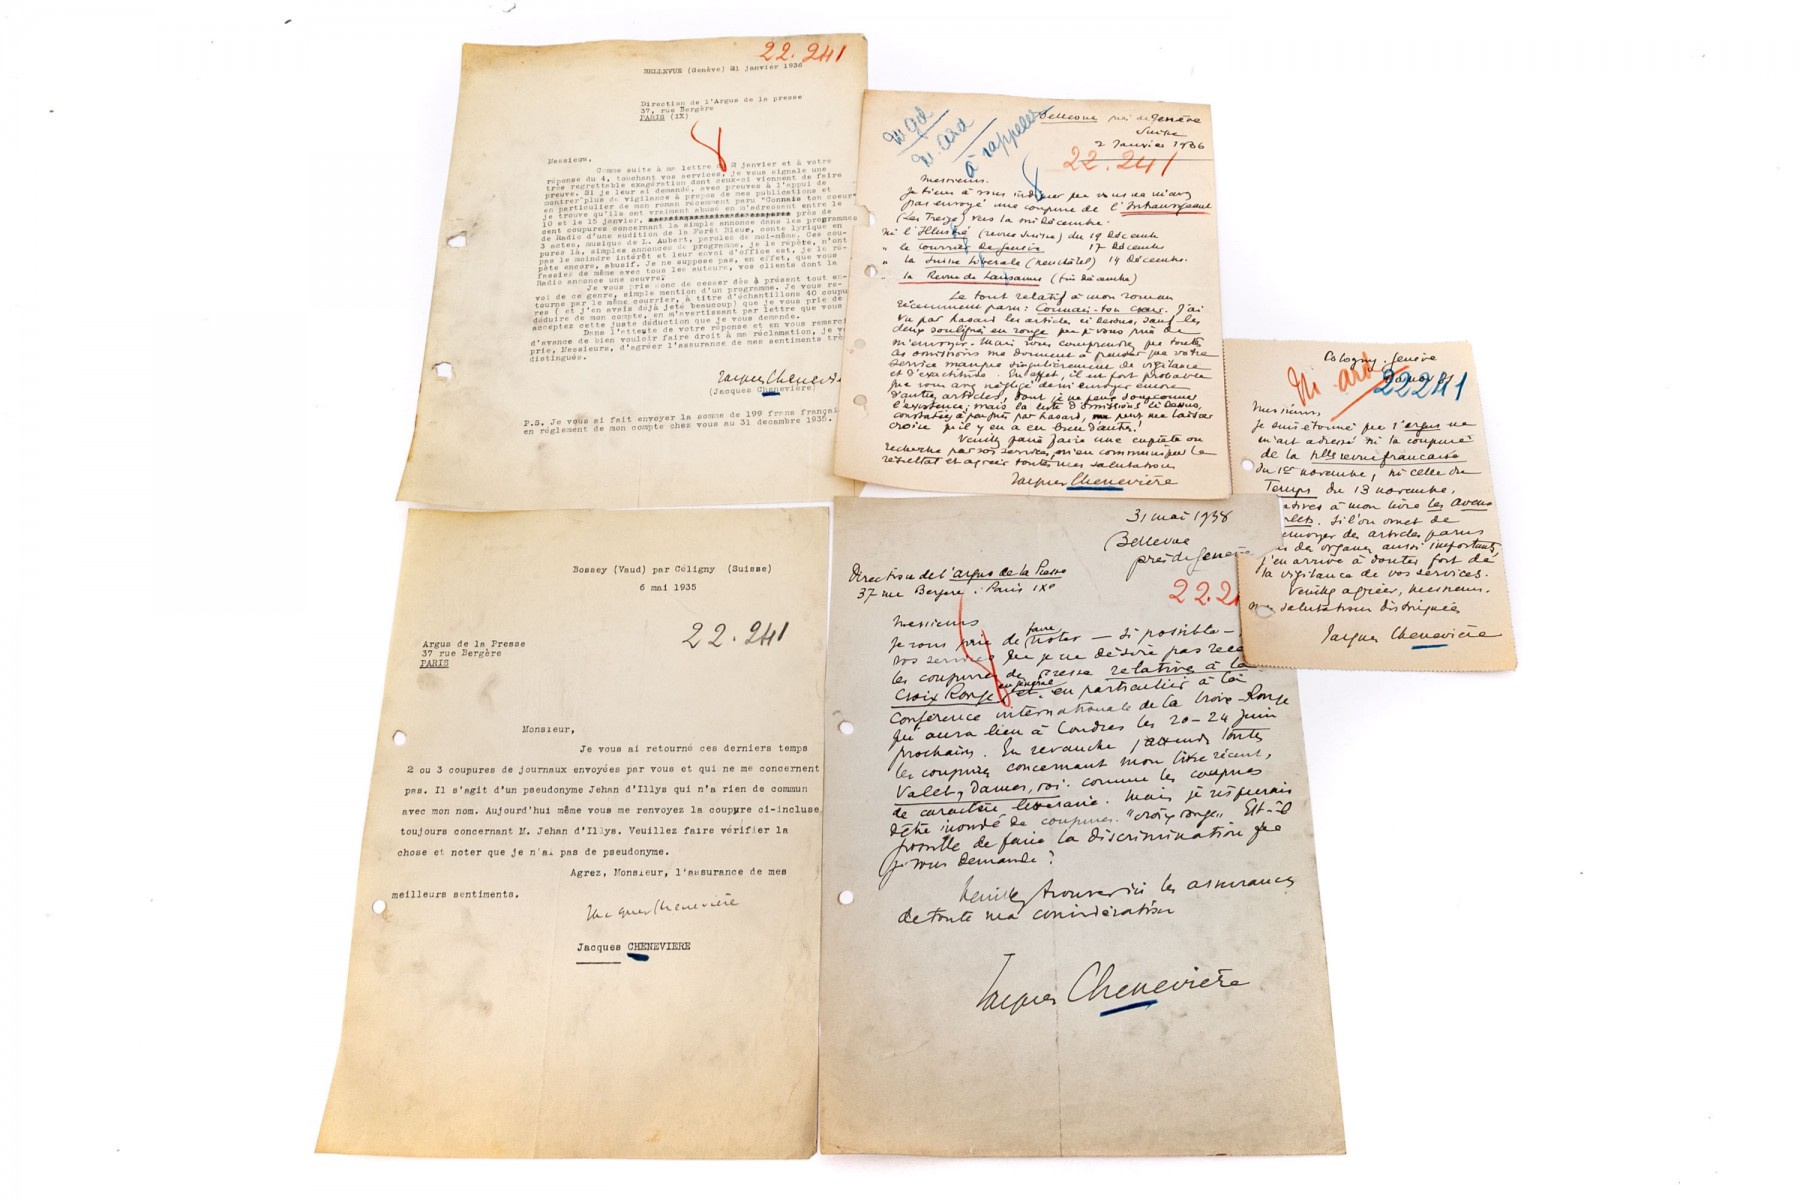 22.241
BELLEVUE (Genève) 21 janvier 1936
Direction de l'Argus de la presse
37, rue Bergère
PARIS (IX)
Messieurs,
Comme suite à ma lettre du 2 janvier et à votre
réponse du 4, touchant vos services, je vous signale une
très regrettable exagération dont ceux-ci viennent de faire
preuve. Si je leur ai demandé, avec preuves à l'appui de
montrer plus de vigilance à propos de mes publications et
en particulier de mon roman récemment paru "Connais ton coeur"
je trouve qu'ils ont vraiment abusé en m'adressant entre le
10 et le 15 janvier, près de
cent coupures concernant la simple annonce dans les programmes
de Radio d'une audition de la Forêt Bleue, conte lyrique en
3 actes, musique de L. Aubert, paroles de moi-même. Ces cou-
pures là, simples annonces de programme, je le répète, n'ont
pas le moindre intérêt et leur envoi d'office est, je le ré-
pète encore, abusif. Je ne suppose pas, en effet, que vous
fassiez de même avec tous les auteurs, vos clients dont la
Radio annonce une oeuvre.
Je vous prie donc de cesser dès à présent tout en-
voi de ce genre, simple mention d'un programme. Je vous re-
tourne par le même courrier, à titre d'échantillons 40 coupu
res ( et j'en avais déjà jeté beaucoup) que je vous prie de
déduire de mon compte, en m'avertissant par lettre que vous
acceptez cette juste déduction que je vous demande.
Dans l'attente de votre réponse et en vous remerci
d'avance de bien vouloir faire droit à ma réclamation, je v
prie, Messieurs, d'agréer l'assurance de mes sentiments trè
distingués.
Jacques Chenevi
(Jacques Chenevière)
P.S. Je vous ai fait envoyer la somme de 199 frans françai
en réglement de mon compte chez vous au 31 decembre 1935.
à rappeler
Bellevue près de Genève
Suisse
2 Janvier 1936
22.241
Messieurs.
Je tiens à vous indiquer que vous ne m'avez
pas envoyé une coupure de l'Intransigeant
(Les Treize) vers la mi décembre.
ni l'Illustré (revue Suisse) du 19 Décembre
" le Courrier de Genève 17 Décembre
" la Suisse Libérale (Neuchâtel) 14 Décembre.
" la Revue de Lausanne (fin décembre)
Le tout relatif à mon roman
récemment paru: Connais ton coeur. J'ai
vu par hasard les articles ci dessus, sauf les
deux soulignés en rouge que je vous prie de
m'envoyer. Mais vous comprendrez que toutes
ces omissions me donnent à penser que votre
service manque singulièrement de vigilance
et d'exactitude. En effet, il est fort probable
que vous avez négligé de m'envoyer encore
d'autres articles, dont je ne peux soupçonner
l'existence; mais la liste d'omissions ci dessus,
constatées par hasard, me laisser
croire qu'il y en a eu bien d'autres!
Veuillez faire une enquête ou
recherche par vos services, m'en communiquer le
résultat et agréer toutes mes salutations
Jacques Chenevière
Cologny. Genève
22241
Messieurs
Je suis étonné que l'argus ne
m'ait adressé ni la coupure
de la Nlle revue française
du 1er novembre, ni celle du
Temps du 13 novembre,
atives à mon livre les aveux
plets. Si l'on omet de
envoyer des articles parus
des organes aussi importants,
j'en arrive à douter fort de
la vigilance de vos services.
Veuillez agréer, messieurs.
mes salutations distinguées
Jacques Chenevière
Bossey (Vaud) par Céligny (Suisse)
6 mai 1935
22.241
Argus de la Presse
37 rue Bergère
PARIS
Monsieur,
Je vous ai retourné ces derniers temps
2 ou 3 coupures de journaux envoyées par vous et qui ne me concernent
pas. Il s'agit d'un pseudonyme Jehan d'Illys qui n'a rien de commun
avec mon nom. Aujourd'hui même vous me renvoyez la coupure ci-incluse,
toujours concernant M. Jehan d'Illys. Veuillez faire vérifier la
chose et noter que je n'ai pas de pseudonyme.
Agrez, Monsieur, l'assurance de mes
meilleurs sentiments.
Jacques Chenevière
Jacques CHENEVIERE
31 mai 1938
Bellevue
près de Genève
Direction de l'argus de la Presse
37 rue Bergère. Paris IXe
22.2
Messieurs
Je vous prie de faire noter – si possible –
vos services que je ne désire pas rece
les coupures de Presse relatives à la
Croix Rouge en général et en particulier à la
Conférence internationale de la Croix-Rouge
qui aura lieu à Londres les 20–24 juin
prochains. En revanche j'attends toutes
les coupures concernant mon livre récent,
Valet, Dames, roi. comme les coupures
de caractère littéraire. Mais je désirerais
d'être inondé de coupures "croix rouge" Est-il
possible de faire la discrimination que
je vous demande?
Veuillez trouver ici les assurances
de toute ma considération
Jacques Chenevière